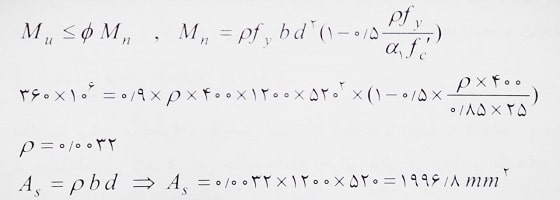 M_u ≤ φ M_n , M_n = ρ f_y b d^۲ (۱ − ۰/۵ ρ f_y / α_۱ f_c′)
۳۶۰×۱۰^۶ = ۰/۹ × ρ × ۴۰۰ × ۱۲۰۰ × ۵۲۰^۲ × (۱ − ۰/۵ × ρ × ۴۰۰ / ۰/۸۵ × ۲۵)
ρ = ۰/۰۰۳۲
A_s = ρ b d ⇒ A_s = ۰/۰۰۳۲×۱۲۰۰×۵۲۰ = ۱۹۹۶/۸ mm^۲